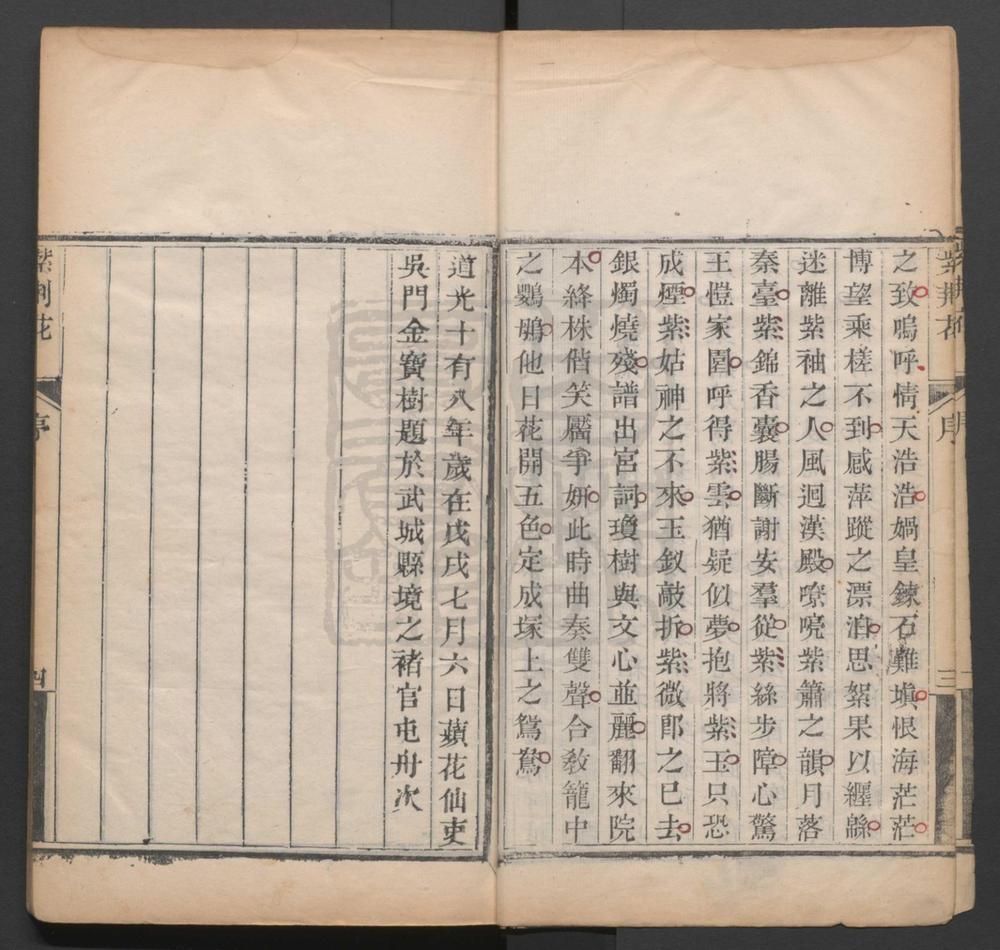 紫荊花
序
三
之致嗚呼情天浩浩媧皇鍊石難塡恨海茫茫
博望乘槎不到感萍蹤之漂泊思絮果以纏緜
迷離紫袖之人風迴漢殿嘹喨紫簫之韻月落
秦臺紫錦香囊腸斷謝安羣從紫絲步障心驚
王愷家園呼得紫雲猶疑似夢抱將紫玉只恐
成煙紫姑神之不來玉釵敲折紫微郎之已去
銀燭燒殘譜出宮詞瓊樹與文心並麗翻來院
本絳株偕笑靨爭妍此時曲奏雙聲合敎籠中
之鸚鵡他日花開五色定成塚上之鴛鴦
道光十有八年歲在戊戌七月六日蘋花仙吏
吳門金寶樹題於武城縣境之褚官屯舟次
紫荊花
序
四